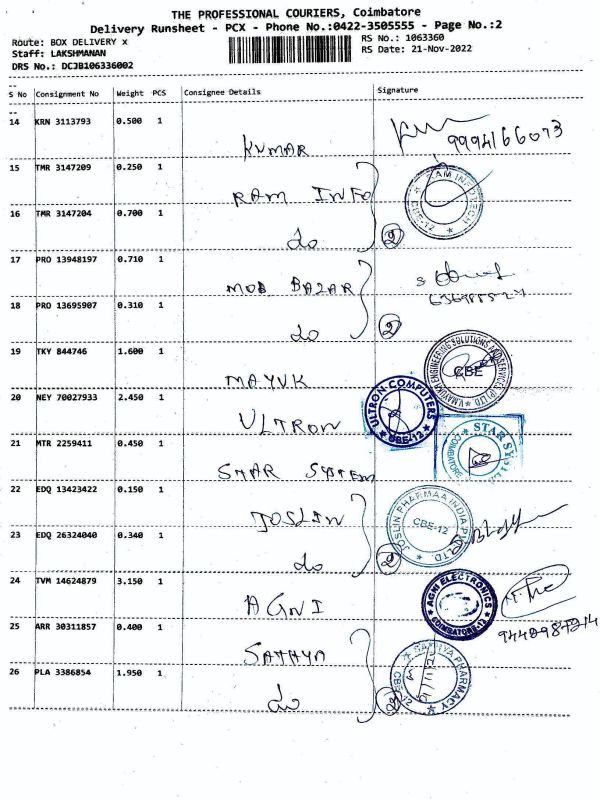 THE PROFESSIONAL COURIERS, Coimbatore
Delivery Runsheet - PCX - Phone No.:0422-3505555 - Page No.:2
Route: BOX DELIVERY x
RS No.: 1063360
Staff: LAKSHMANAN
RS Date: 21-Nov-2022
DRS No.: DCJB106336002
S No Consignment No Weight PCS Consignee Details Signature
14 KRN 3113793 0.500 1
KUMAR 9994166073
15 TMR 3147209 0.250 1
RAM INFO
16 TMR 3147204 0.700 1
do 2
17 PRO 13948197 0.710 1
MOB BAZAR
18 PRO 13695907 0.310 1
do 2
19 TKY 844746 1.600 1
MAYUK
CBE
20 NEY 70027933 2.450 1
ULTRON
ULTRON COMPUTERS
CBE-12
21 MTR 2259411 0.450 1
STAR SYSTEM
COIMBATORE
22 EDQ 13423422 0.150 1
JOSLIN
JOSLIN PHARMAA INDIA PVT LTD
CBE-12
23 EDQ 26324040 0.340 1
do 2
24 TVM 14624879 3.150 1
AGNI
AGNI ELECTRONICS
COIMBATORE-12
25 ARR 30311857 0.400 1
SATHYA
SATHYA PHARMACY
26 PLA 3386854 1.950 1
do